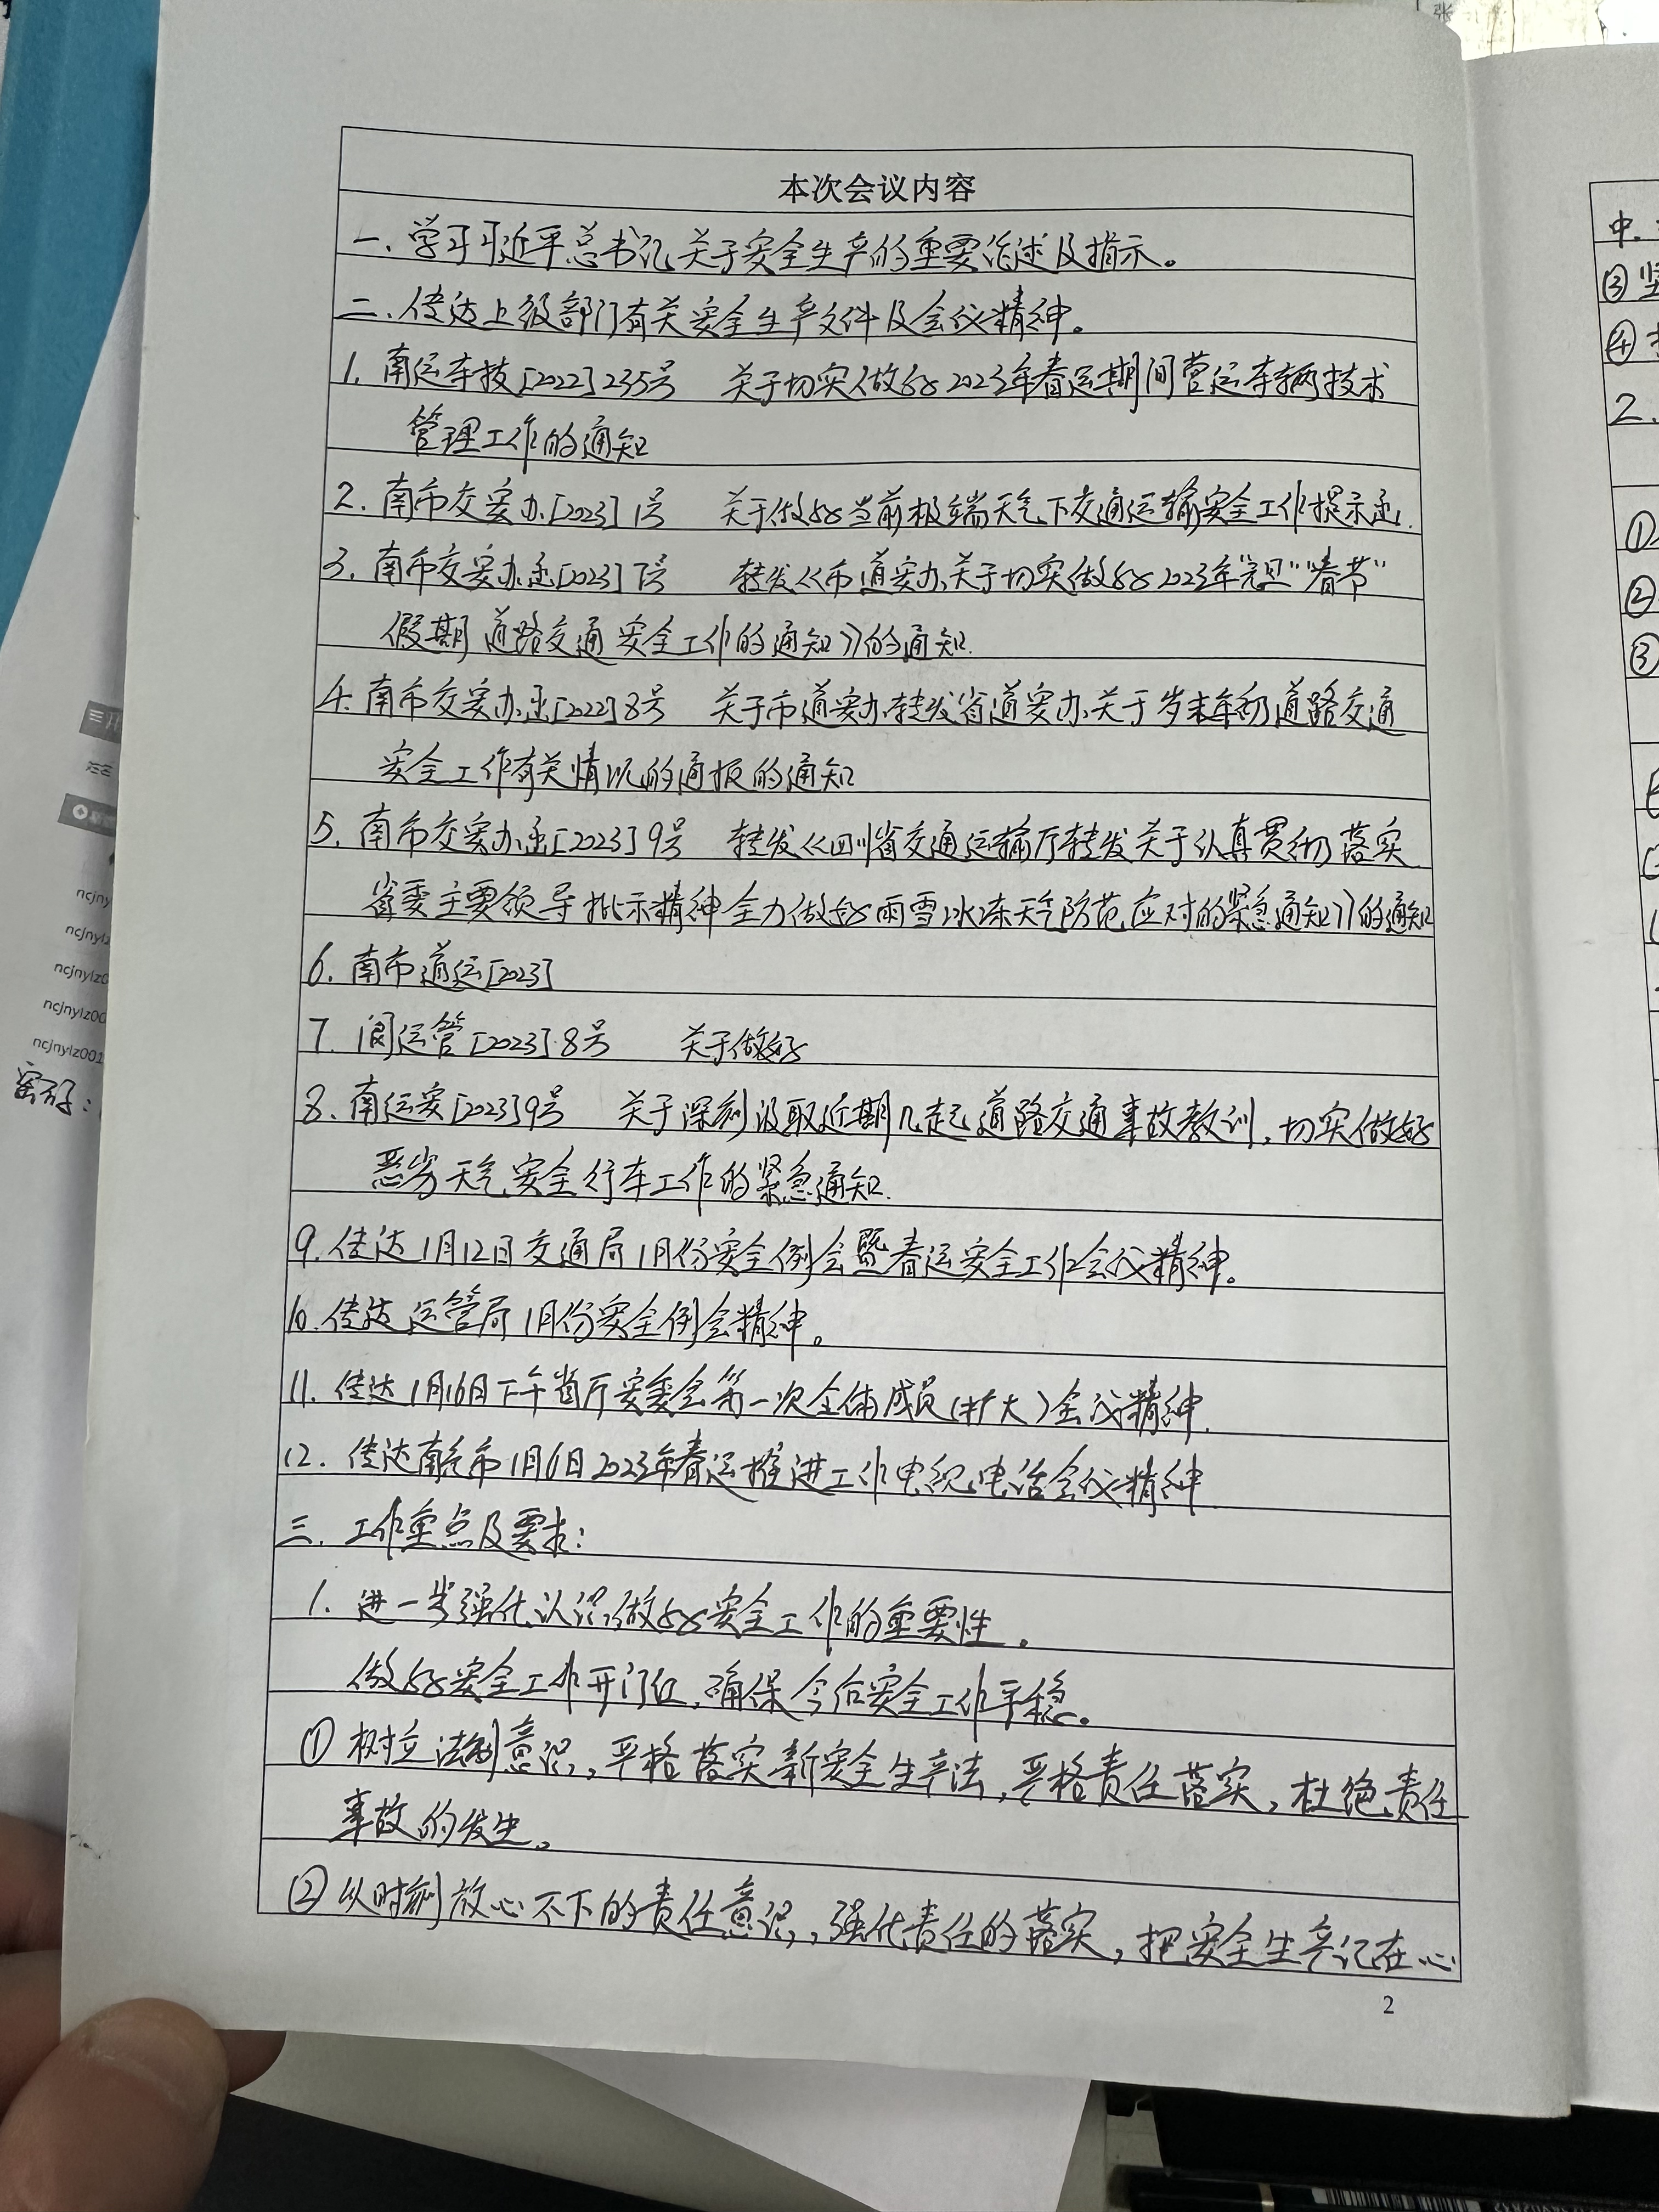 本次会议内容
一、学习习近平总书记关于安全生产的重要论述及指示。
二、传达上级部门有关安全生产文件及会议精神。
1. 南运车技[2022]235号 关于切实做好2023年春运期间营运车辆技术
管理工作的通知
2. 南市交安办[2023]1号 关于做好当前极端天气下交通运输安全工作提示函.
3. 南市交安办函[2023]7号 转发《市道安办关于切实做好2023年"元旦""春节"
假期道路交通安全工作的通知》的通知.
4. 南市交安办函[2022]8号 关于市道安办转发省道安办关于岁末年初道路交通
安全工作有关情况的通报的通知
5. 南市交安办函[2023]9号 转发《四川省交通运输厅转发关于认真贯彻落实
省委主要领导批示精神全力做好雨雪冰冻天气防范应对的紧急通知》的通知
6. 南市道运[2023]
7. 阆运管[2023]8号 关于做好
8. 南运安[2023]9号 关于深刻汲取近期几起道路交通事故教训,切实做好
恶劣天气安全行车工作的紧急通知.
9. 传达1月12日交通局1月份安全例会暨春运安全工作会议精神。
10. 传达运管局1月份安全例会精神。
11. 传达1月16日下午省厅安委会第一次全体成员(扩大)会议精神.
12. 传达南充市1月6日2023年春运推进工作电视电话会议精神.
三、工作重点及要求:
1. 进一步强化认识做好安全工作的重要性。
做好安全工作开门红,确保今后安全工作平稳。
① 树立法制意识,严格落实新安全生产法,严格责任落实,杜绝责任
事故的发生。
② 从时刻放心不下的责任意识,强化责任的落实,把安全生产记在心
2
ncjny
ncjnylz
ncjnylz0
ncjnylz00
ncjnylz001
密码:
中.
③ 坚
④
2.
①
②
③